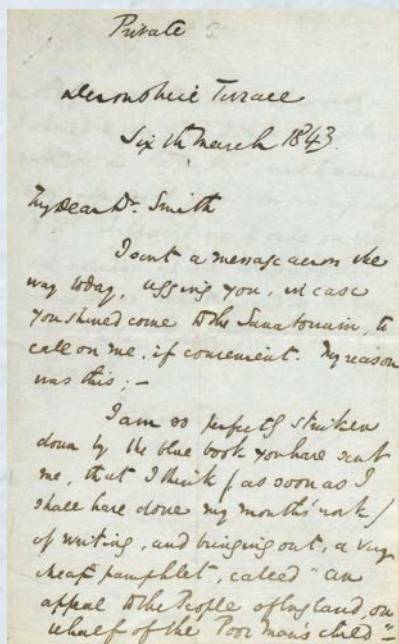 Private 5
Devonshire Terrace
Sixth March 1843.
My Dear Dr. Smith
I sent a message across the
way today, begging you, in case
you should come to the Sanatorium, to
call on me, if convenient. My reason
was this; –
I am so perfectly stricken
down by the blue book you have sent
me, that I think (as soon as I
shall have done my month's work)
of writing, and bringing out, a very
cheap pamphlet, called "An
appeal to the People of England, on
behalf of the Poor Man's Child" –